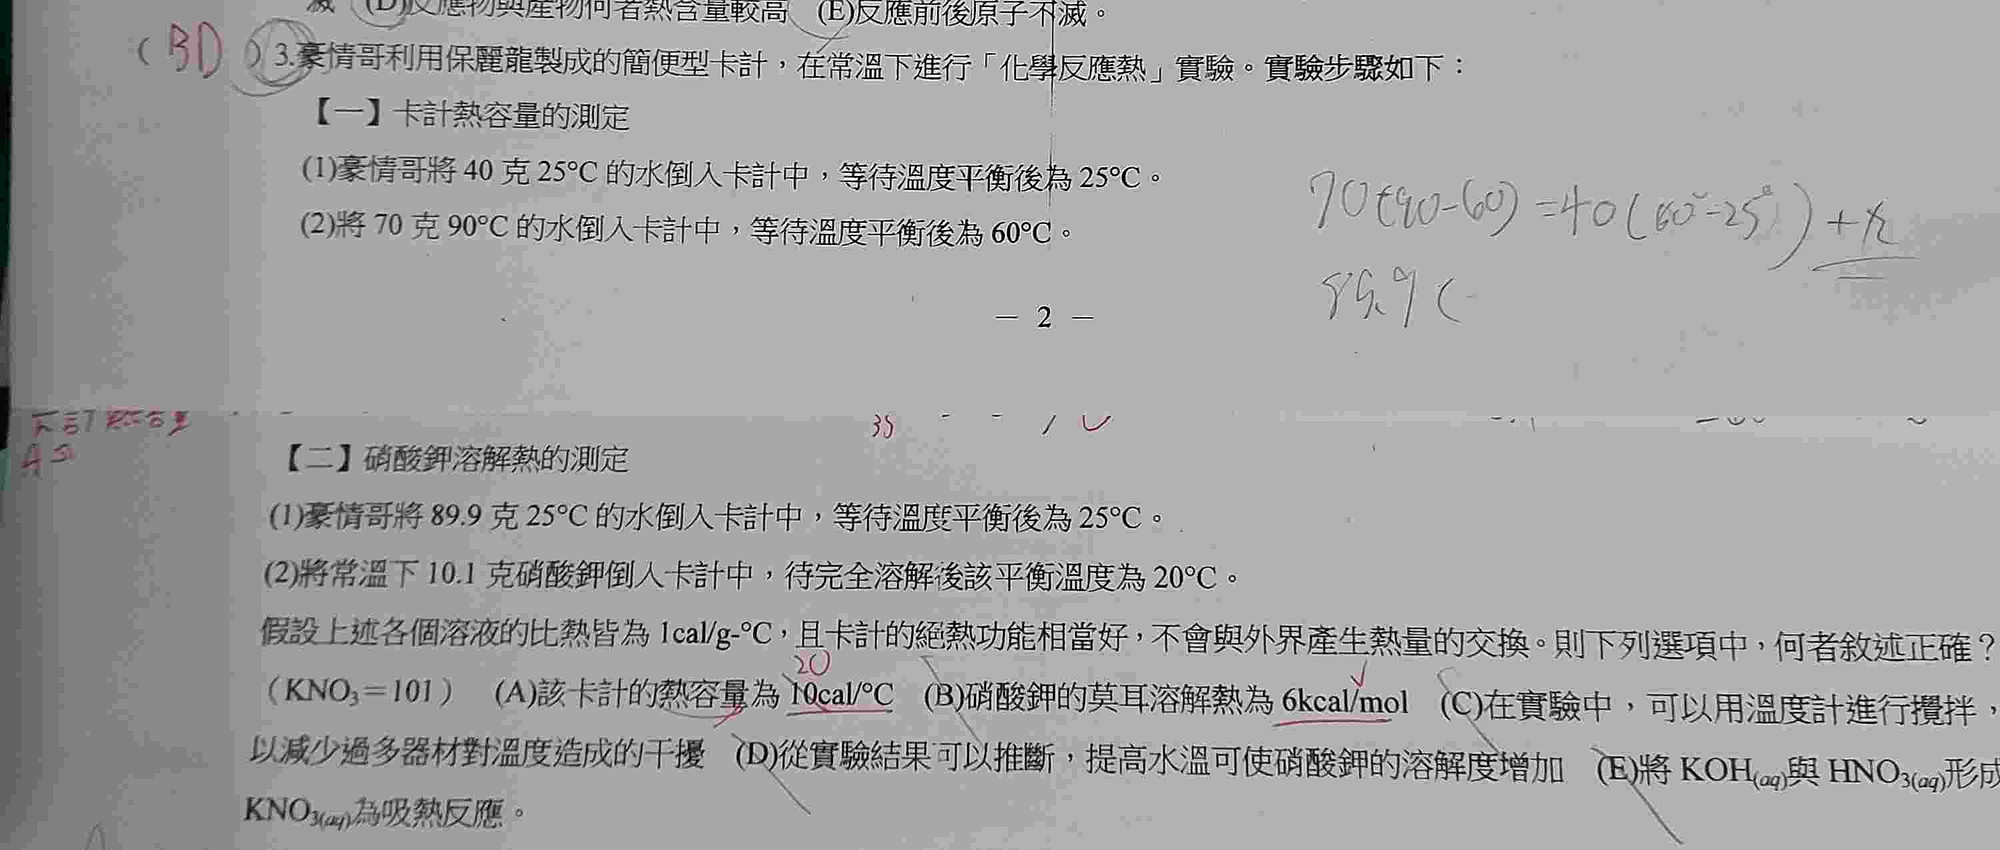 滅 (D)反應物與產物何者熱含量較高 (E)反應前後原子不滅。
( BD ) 3.豪情哥利用保麗龍製成的簡便型卡計，在常溫下進行「化學反應熱」實驗。實驗步驟如下：
【一】卡計熱容量的測定
(1)豪情哥將 40 克 25°C 的水倒入卡計中，等待溫度平衡後為 25°C。
(2)將 70 克 90°C 的水倒入卡計中，等待溫度平衡後為 60°C。
70(90-60)=40(60°-25°)+x
－ 2 －
35
【二】硝酸鉀溶解熱的測定
(1)豪情哥將 89.9 克 25°C 的水倒入卡計中，等待溫度平衡後為 25°C。
(2)將常溫下 10.1 克硝酸鉀倒入卡計中，待完全溶解後該平衡溫度為 20°C。
假設上述各個溶液的比熱皆為 1cal/g-°C，且卡計的絕熱功能相當好，不會與外界產生熱量的交換。則下列選項中，何者敘述正確？
20
（KNO₃＝101） (A)該卡計的熱容量為 10cal/°C (B)硝酸鉀的莫耳溶解熱為 6kcal/mol (C)在實驗中，可以用溫度計進行攪拌，
以減少過多器材對溫度造成的干擾 (D)從實驗結果可以推斷，提高水溫可使硝酸鉀的溶解度增加 (E)將 KOH(aq)與 HNO₃(aq)形成
KNO₃(aq)為吸熱反應。